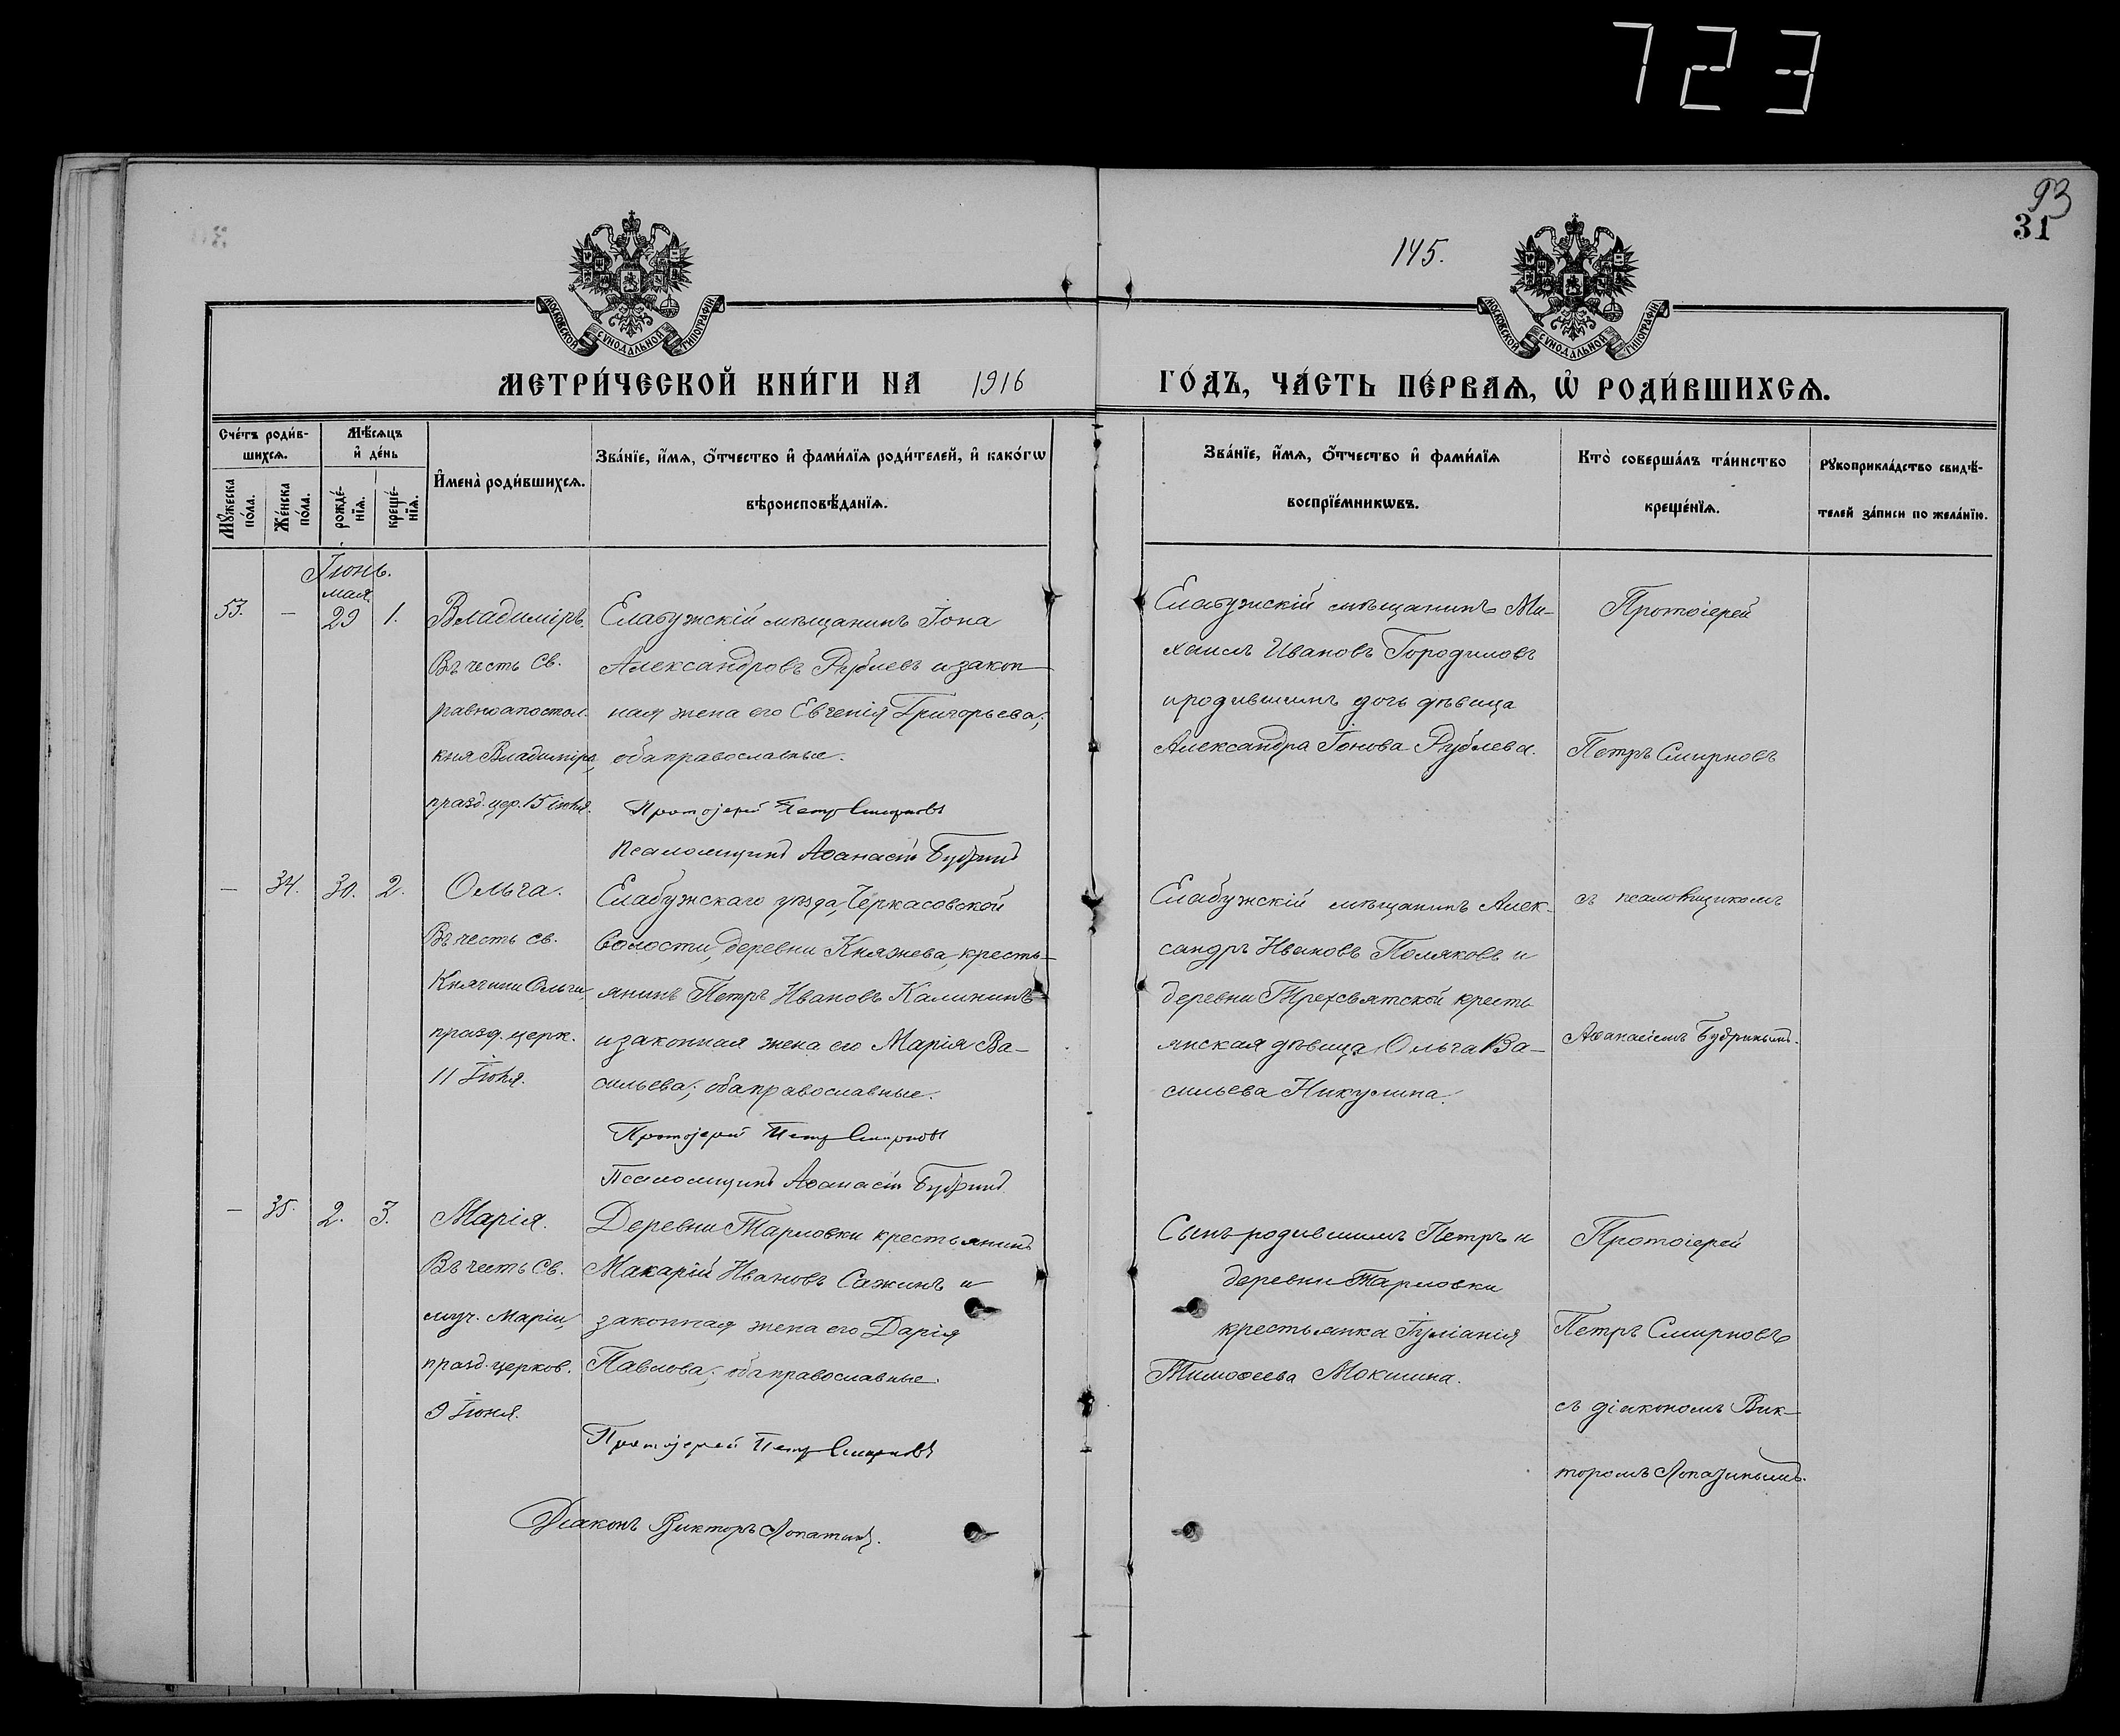 723
93
31
145.
МОСКОВСКОЙ СУНОДАЛЬНОЙ ТИПОГРАФІИ
МОСКОВСКОЙ СУНОДАЛЬНОЙ ТИПОГРАФІИ
МЕТРИ́ЧЕСКОЙ КНИ́ГИ НА 1916 ГО́ДЪ, ЧА́СТЬ ПЕ́РВАѦ, Ѡ҆ РОДИ́ВШИХСѦ.
Сче́тъ роди́в-
шихсѧ.
Мѣ́сѧцъ
и҆ де́нь
Мꙋ́жеска
по́ла.
Же́нска
по́ла.
рожде́-
нїѧ.
креще́-
нїѧ.
И҆мена̀ роди́вшихсѧ.
Зва́нїе, и҆́мѧ, ѻ҆́тчество и҆ фами́лїѧ роди́телей, и҆ како́гѡ
вѣроисповѣ́данїѧ.
Зва́нїе, и҆́мѧ, ѻ҆́тчество и҆ фами́лїѧ
воспрїе́мникѡвъ.
Кто̀ соверша́лъ та́инство
креще́нїѧ.
Рꙋкоприкла́дство свидѣ́-
телей за́писи по жела́нїю.
Іюнь.
мая.
53. — 29 1.
Владиміръ.
Въ честь Св.
равноапостол.
князя Владиміра,
празд. цер. 15 іюля.
Елабужскій мѣщанинъ Іона
Александровъ Рублевъ и закон
ная жена его Евгенія Григорьева;
оба православные.
Протоіерей Петръ Смирновъ
Псаломщикъ Аѳанасій Бубринъ
Елабужскій мѣщанинъ Ми-
хаилъ Ивановъ Городиловъ
и родившимъ дочь дѣвица
Александра Іонова Рублева.
Протоіерей
Петръ Смирновъ
— 34. 30. 2.
Ольга.
Въ честь св.
Княгини Ольги,
празд. церк.
11 Іюля.
Елабужскаго уѣзда, Черкасовской
волости, деревни Княжева, кресть-
янинъ Петръ Ивановъ Калининъ
и законная жена его Марія Ва-
сильева; оба православные.
Протоіерей Петръ Смирновъ
Псаломщикъ Аѳанасій Бубринъ
Елабужскій мѣщанинъ Алек-
сандръ Ивановъ Поляковъ и
деревни Трехсвятской кресть
янская дѣвица Ольга Ва-
сильева Никулина.
съ псаломщикомъ
Аѳанасіемъ Бубринымъ.
— 35. 2. 3.
Марія.
Въ честь Св.
муч. Маріи,
празд. церков.
9 Іюня.
Деревни Тарловки крестьянинъ
Макарій Ивановъ Сажинъ и
законная жена его Дарія
Павлова; оба православные.
Протоіерей Петръ Смирновъ
Діаконъ Викторъ Лопатинъ.
Сынъ родившимъ Петръ и
деревни Тарловки
крестьянка Іуліанія
Тимоѳеева Мокшина.
Протоіерей
Петръ Смирновъ
съ діакономъ Вик-
торомъ Лопатинымъ.